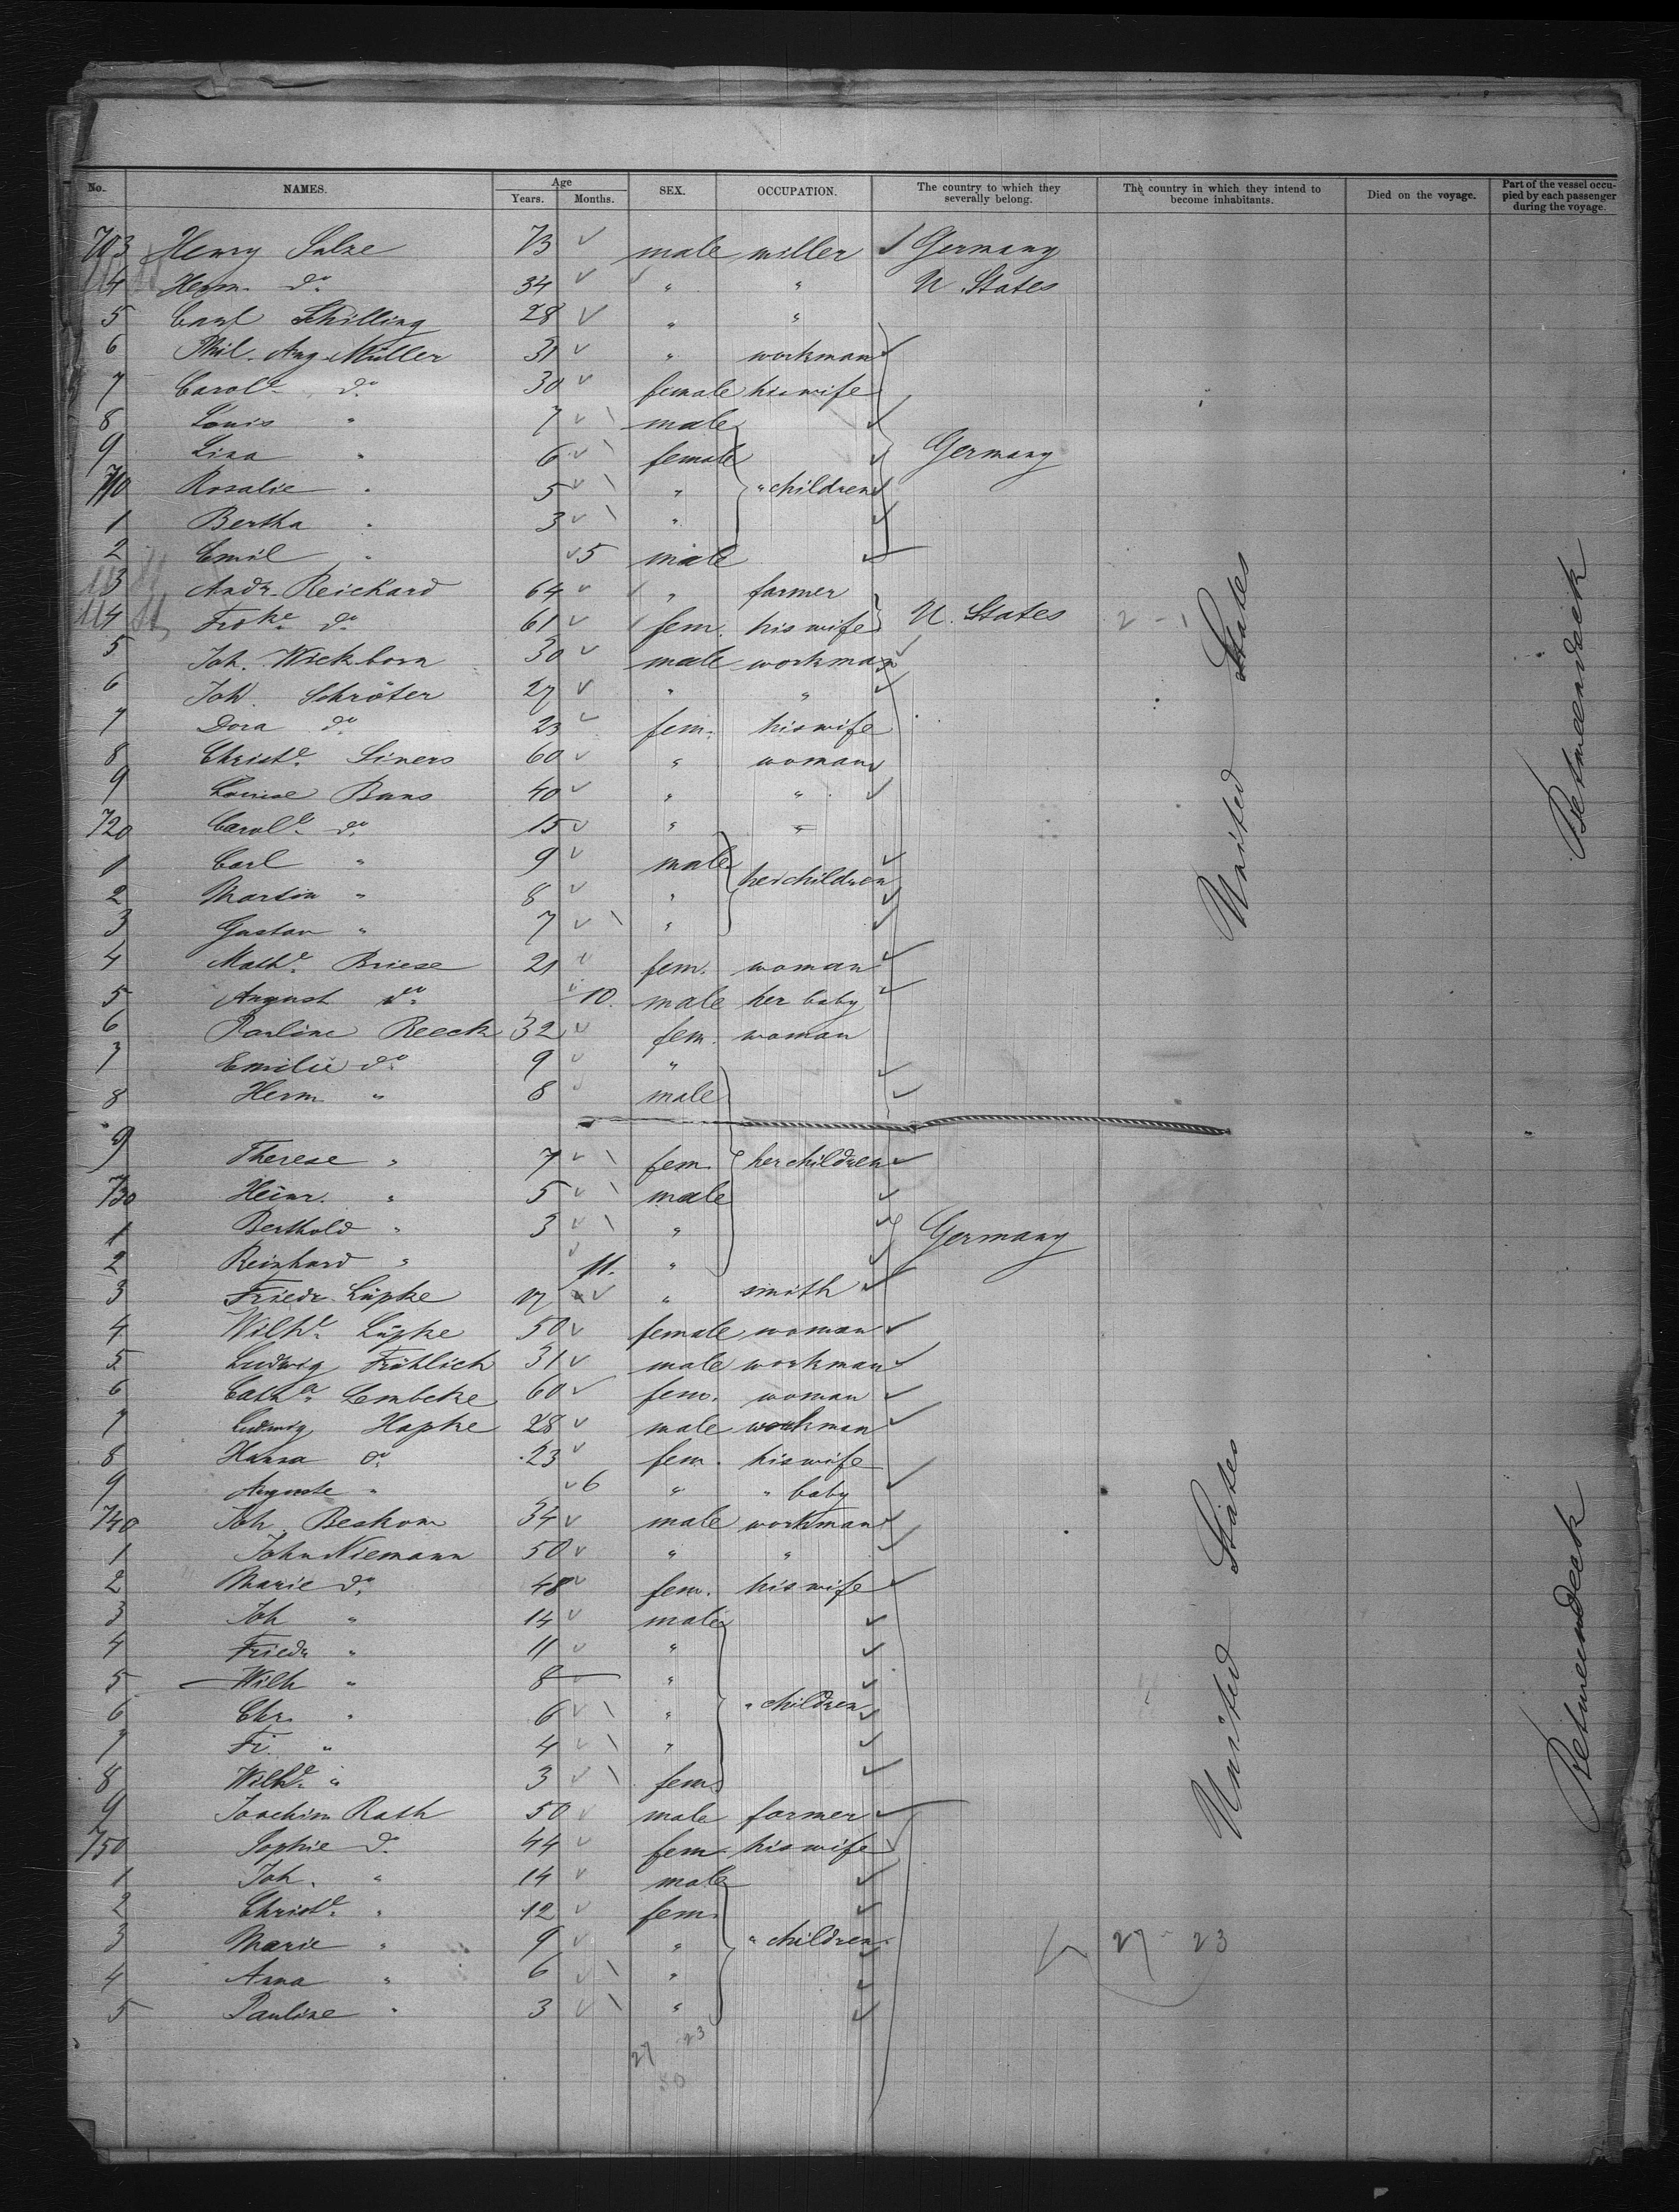 No. NAMES. Age Years. Months. SEX. OCCUPATION. The country to which they severally belong. The country in which they intend to become inhabitants. Died on the voyage. Part of the vessel occupied by each passenger during the voyage.
703 Henry Sulze 73 male miller Germany
4 Herm. do 34 " " U. States
5 Carl Schilling 28 " "
6 Phil. Aug. Müller 31 " workman
7 Carole. do 30 female his wife
8 Louis " 7 male
9 Lina " 6 female Germany
710 Rosalie " 5 " " children
1 Bertha " 3 "
2 Emil " 5 male
3 Andr. Reichard 64 " farmer
4 Frdke. do 61 fem. his wife U. States
5 Joh. Wickborn 30 male workman
6 Joh. Schröter 27 " "
7 Dora do 23 fem. his wife
8 Christe. Siners 60 " woman
9 Louise Bans 40 " "
720 Carole. do 15 " "
1 Carl " 9 male her children
2 Martin " 8 "
3 Gustav " 7 "
4 Mathe. Briese 21 fem. woman
5 August do 10. male her baby
6 Pauline Reeck 32 fem. woman
7 Emilie do 9 "
8 Herm " 8 male
9 Therese " 7 fem. her children
730 Heinr. " 5 male
1 Berthold " 3 " Germany
2 Reinhard " 11. "
3 Friedr. Lüpke 17 " smith
4 Wilhe. Lüpke 50 female woman
5 Ludwig Fröhlich 31 male workman
6 Catha. Lembcke 60 fem. woman
7 Ludwig Hapke 28 male workman
8 Hanna do 23 fem. his wife
9 Auguste " 6 " " baby
740 Joh. Beskow 34 male workman
1 John Niemann 50 " "
2 Marie do 48 fem. his wife
3 Joh " 14 male
4 Friedr " 11 "
5 Wilh " 8 "
6 Chr. " 6 " " children
7 Fr. " 4 "
8 Wilhe. " 3 fem.
9 Joachim Rath 50 male farmer
750 Sophie do 44 fem. his wife
1 Joh. " 14 male
2 Christe. " 12 fem.
3 Marie " 9 " " children 27 23
4 Anna " 6 "
5 Pauline " 3 "
27 23
50
United States
Betweendeck
United States
Betweendeck